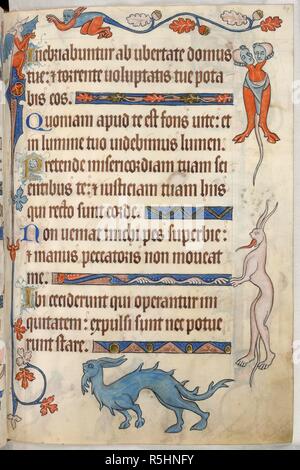 Inebriabuntur ab ubertate domus
tue: et torrente voluptatis tue pota
bis eos.
Quoniam apud te est fons uite: et
in lumine tuo uidebimus lumen.
Pretende misericordiam tuam sci
entibus te: et iusticiam tuam hiis
qui recto sunt corde.
Non ueniat michi pes superbie:
et manus peccatoris non moueat
me.
Ibi ceciderunt qui operantur ini
quitatem: expulsi sunt nec potue
runt stare.
alamy
R5HNFY
www.alamy.com